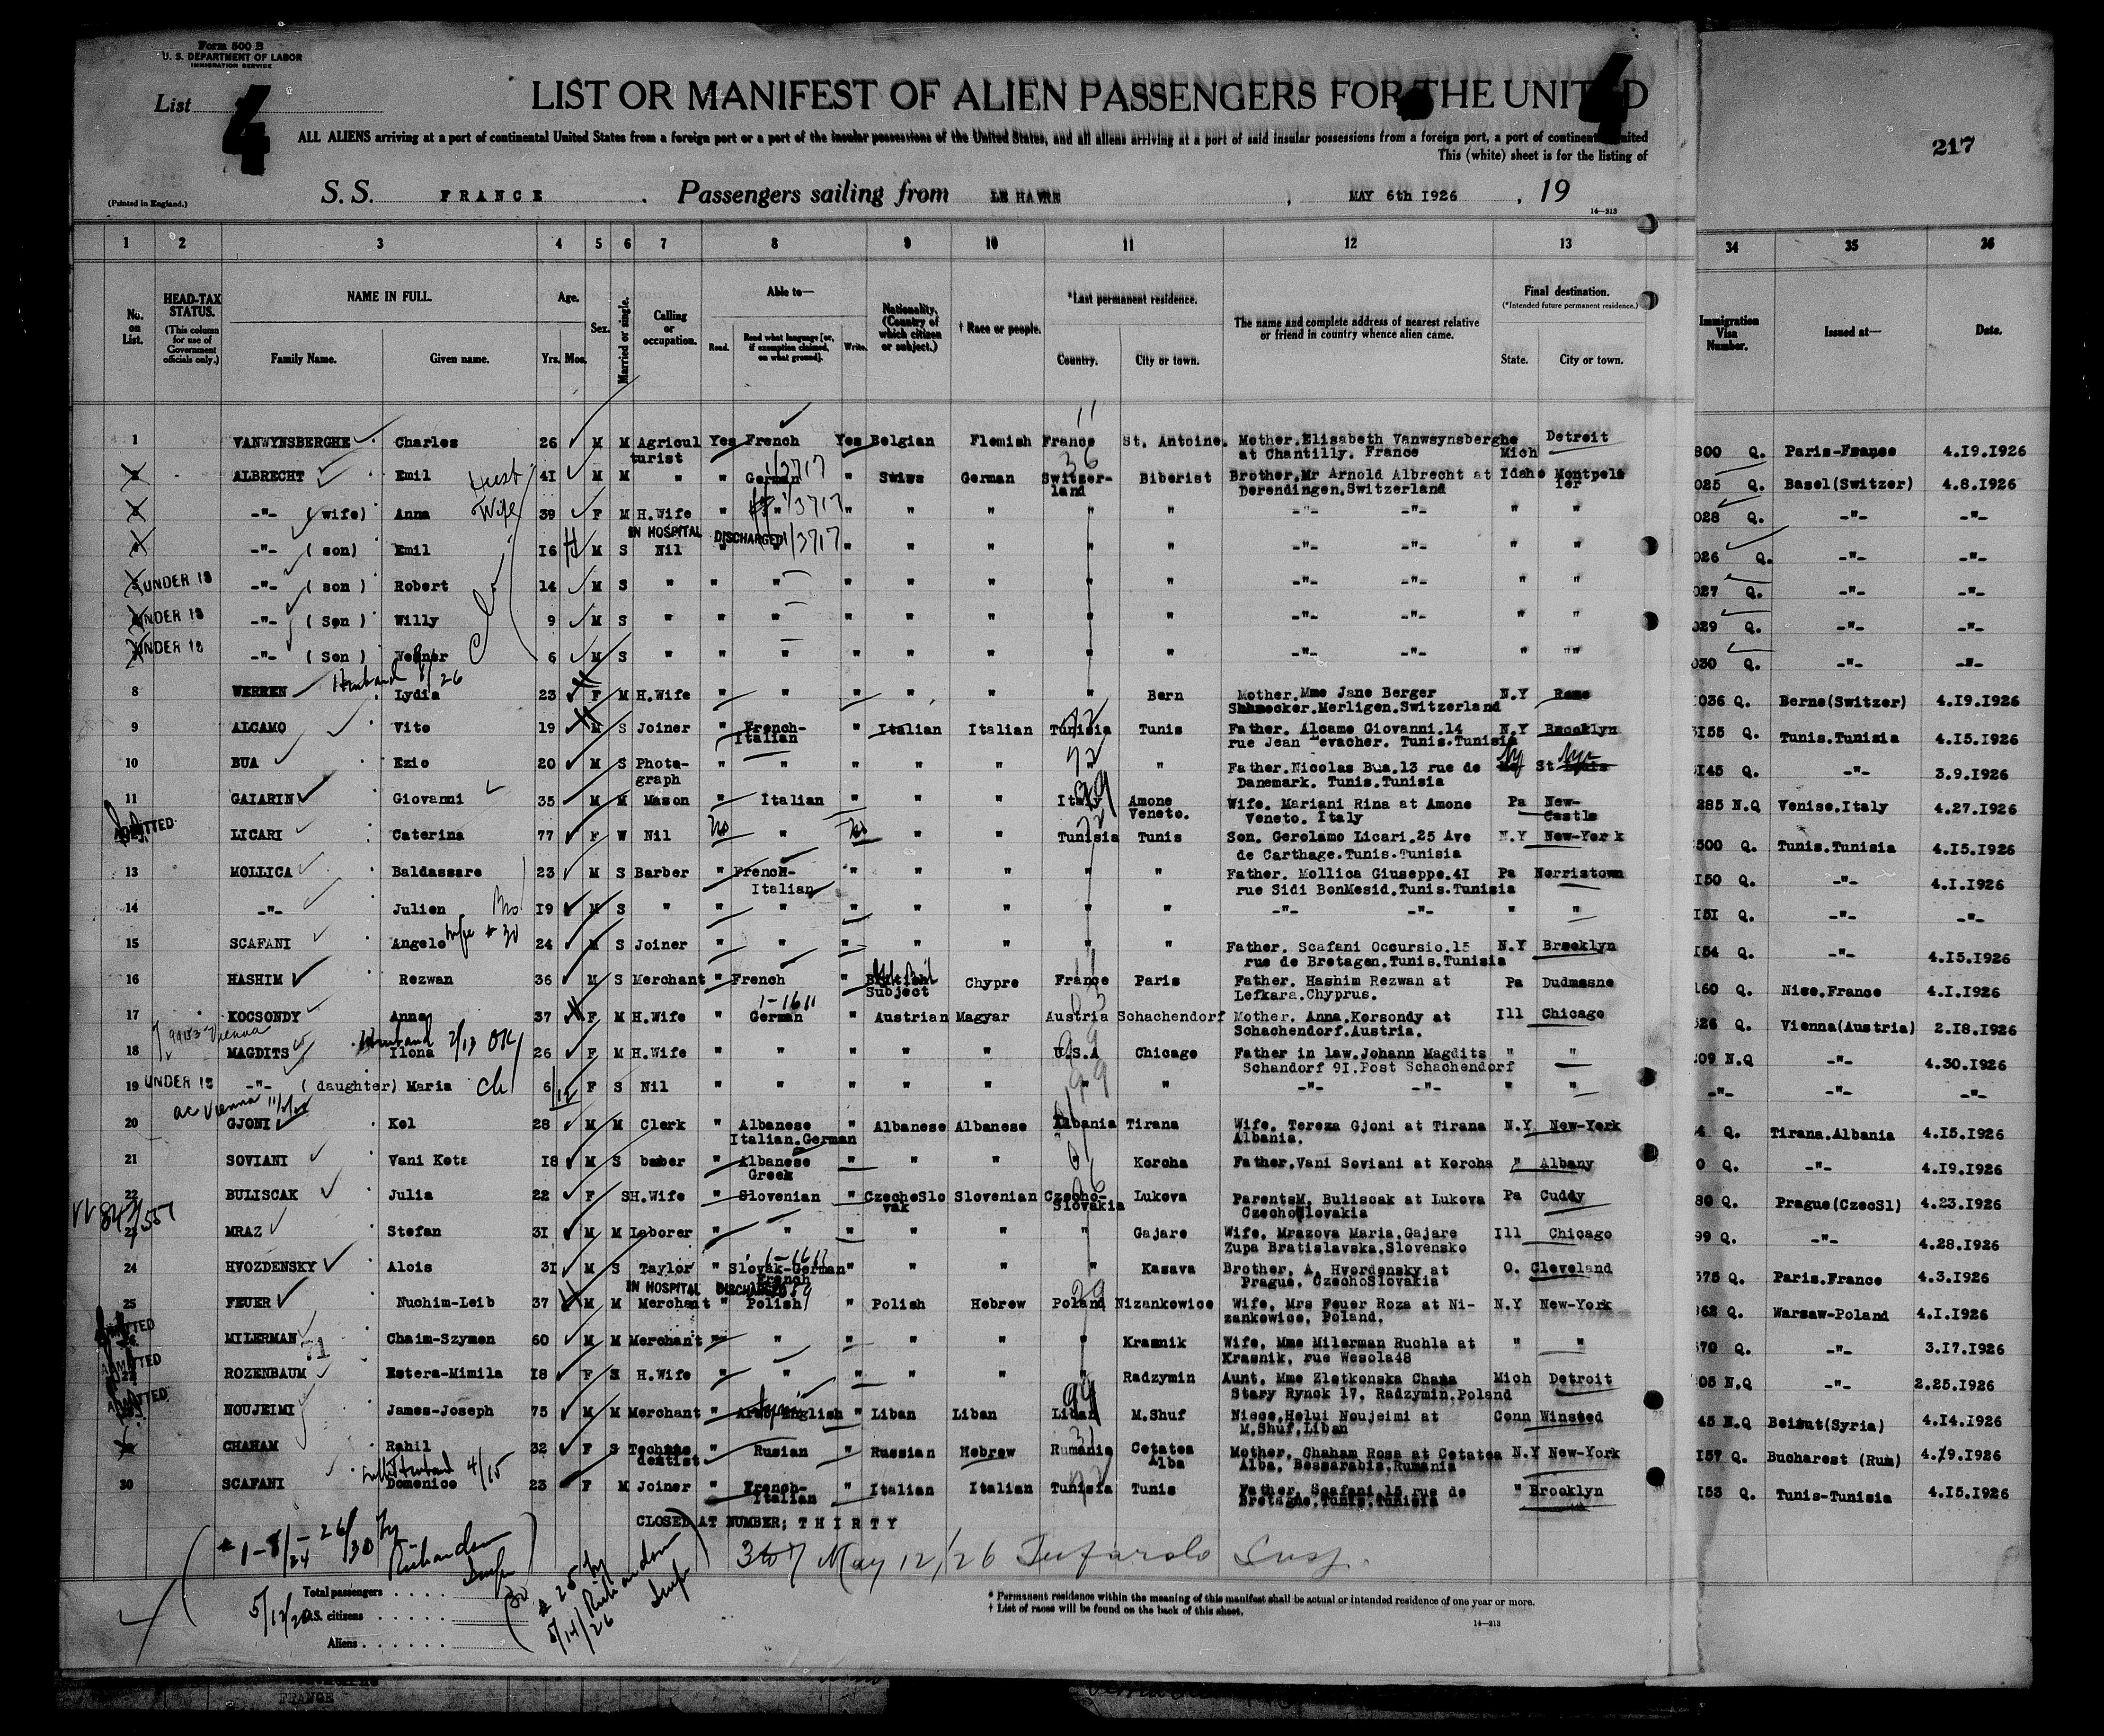 Form 500 B
U. S. DEPARTMENT OF LABOR
IMMIGRATION SERVICE
List 4
LIST OR MANIFEST OF ALIEN PASSENGERS FOR THE UNITED
4
ALL ALIENS arriving at a port of continental United States from a foreign port or a port of the insular possessions of the United States, and all aliens arriving at a port of said insular possessions from a foreign port, a port of continental United
This (white) sheet is for the listing of
217
(Printed in England.)
S. S. FRANCE . Passengers sailing from LE HAVRE , MAY 6th I926 , 19
14—213
1 2 3 4 5 6 7 8 9 10 11 12 13 34 35 36
No. on List.
HEAD-TAX STATUS.
(This column for use of Government officials only.)
NAME IN FULL.
Family Name. Given name.
Age.
Yrs. Mos.
Sex.
Married or single.
Calling or occupation.
Able to—
Read. Read what language [or, if exemption claimed, on what ground]. Write.
Nationality. (Country of which citizen or subject.)
† Race or people.
*Last permanent residence.
Country. City or town.
The name and complete address of nearest relative or friend in country whence alien came.
Final destination.
(*Intended future permanent residence.)
State. City or town.
Immigration Visa Number.
Issued at—
Date.
1 VANWYNSBERGHE Charles 26 M M Agricul Yes French Yes Belgian Flemish France St. Antoine. Mother.Elisabeth Vanwsynsberghe Detroit 800 Q. Paris-France 4.I9.I926
turist at Chantilly. France Mich
ALBRECHT Emil 4I M M " " German " Swiss German Switzer- Biberist Brother.Mr Arnold Albrecht at Idaho Montpele 025 Q. Basel(Switzer) 4.8.I926
land Derendingen.Switzerland ier
-"- (wife) Anna 39 F M H.Wife " " " " " " " -"- -"- " " 028 Q. -"- -"-
IN HOSPITAL DISCHARGED
-"- ( son) Emil I6 M S Nil " " " " " " " -"- -"- " " 026 Q. -"- -"-
UNDER 18 -"- ( son ) Robert I4 M S " " " " " " " " -"- -"- " " 027 Q. -"- -"-
UNDER 18 -"- ( Son ) Willy 9 M S " " " " " " " " -"- -"- " " 029 Q. -"- -"-
UNDER 18 -"- ( Son ) 6 M S " " " " " " " " -"- -"- " "" 030 Q. -"- -"-
8 WERREN Lydia 23 F M H.Wife " " " " " " Bern Mother.Mme Jane Berger N.Y Rome I036 Q. Berne(Switzer) 4.I9.I926
Merligen.Switzerland
9 ALCAMO Vito I9 M S Joiner " French- " Italian Italian Tunisia Tunis Father. Alcamo Giovanni.I4 N.Y Brooklyn 3I55 Q. Tunis.Tunisia 4.I5.I926
Italian rue Jean Levacher. Tunis.Tunisia
10 BUA Ezio 20 M S Photo- " " " " " " " Father.Nicolas Bua.I3 rue de St Louis 3I45 Q. -"- 3.9.I926
graph Danemark. Tunis.Tunisia
11 GAIARIN Giovanni 35 M M Mason " Italian " " " Italy Amone Wife. Mariani Rina at Amone Pa New- 285 N.Q Venise.Italy 4.27.I926
Veneto. Veneto. Italy Castle
ADMITTED LICARI Caterina 77 F W Nil No " No " " Tunisia Tunis Son. Gerolamo Licari.25 Ave N.Y New-York 500 Q. Tunis.Tunisia 4.I5.I926
de Carthage.Tunis.Tunisia
13 MOLLICA Baldassare 23 M S Barber " French- " " " " " Father. Mollica Giuseppe.4I Pa Norristown I50 Q. -"- 4.I.I926
Italian rue Sidi BonMesid.Tunis.Tunisia
14 -"- Julien Bro I9 M S " " " " " " " " -"- -"- " " I5I Q. -"- -"-
15 SCAFANI Angelo 24 M S Joiner " " " " " " " Father. Scafani Occursio.I5 N.Y Brooklyn I54 Q. -"- 4.I5.I926
rue de Bretagen.Tunis.Tunisia
16 HASHIM Rezwan 36 M S Merchant " French " British Chypre France Paris Father. Hashim Rezwan at Pa Dudmesne I60 Q. Nice.France 4.I.I926
Subject Lefkara.Chyprus.
17 KOCSONDY Anna 37 F M H.Wife " German " Austrian Magyar Austria Schachendorf Mother. Anna.Korsondy at Ill Chicago 526 Q. Vienna(Austria) 2.I8.I926
Schachendorf.Austria.
Husband 2/13 OK
18 MAGDITS Ilona 26 F M H.Wife " " " " " U.S.A Chicago Father in law.Johann Magdits " " 09 N.Q -"- 4.30.I926
Schandorf 9I.Post Schachendorf
19 UNDER 18 -"- ( daughter) Maria ch 6/12 F S Nil " " " " " " " -"- -"- " " -"- -"- -"-
20 GJONI Kol 28 M M Clerk " Albanese " Albanese Albanese Albania Tirana Wife. Tereza Gjoni at Tirana N.Y New-York 4 Q. Tirana.Albania 4.I5.I926
Italian.German Albania.
21 SOVIANI Vani Kota I8 M S " Albanese " " " " Korcha Father.Vani Soviani at Korcha " Albany 0 Q. -"- 4.I9.I926
Greek
22 BULISCAK Julia 22 F S H.Wife " Slovenian " CzechoSlo Slovenian Czecho- Lukova ParentsM. Buliscak at Lukova Pa Cuddy 80 Q. Prague(CzecSl) 4.23.I926
vak Slovakia CzechoSlovakia
23 MRAZ Stefan 3I M M Laborer " " " " " " Gajare Wife. Mrazova Maria.Gajare Ill Chicago 99 Q. -"- 4.28.I926
Zupa Bratislavska.Slovensko
24 HVOZDENSKY Alois 3I M S Taylor " Slovak-German " " " " Kasava Brother. A. Hvordensky at O. Cleveland 575 Q. Paris.France 4.3.I926
IN HOSPITAL DISCHARGED French Prague. CzechoSlovakia
25 FEUER Nuchim-Leib 37 M M Merchant " Polish " Polish Hebrew Poland Nizankowice Wife. Mrs Feuer Roza at Ni- N.Y New-York 362 Q. Warsaw-Poland 4.I.I926
zankowice. Poland.
ADMITTED MILERMAN Chaim-Szymon 60 M M Merchant " " " " " " Krasnik Wife. Mme Milerman Ruchla at " " 570 Q. -"- 3.I7.I926
Krasnik. rue Wesola48
ADMITTED ROZENBAUM Estera-Mimila I8 F S H.Wife " " " " " " Radzymin Aunt. Mme Zlotkonska Chana Mich Detroit 05 N.Q -"- 2.25.I926
Stary Rynok I7. Radzymin.Poland
ADMITTED NOUJEIMI James-Joseph 75 M M Merchant " English " Liban Liban Liban M.Shuf Niece.Helui Noujeimi at Conn Winsted 45 N.Q Beirut(Syria) 4.I4.I926
M.Shuf.Liban
CHAHAM Rahil 32 F S " Rusian " Russian Hebrew Rumania Cetatea Mother. Chaham Rosa at Cetatea N.Y New-York I57 Q. Bucharest (Rum) 4.I9.I926
dentist Alba Alba. Bessarabia.Rumania
30 SCAFANI Domenico 23 F M Joiner " French- " Italian Italian Tunisia Tunis Father. Scafani I5 rue de " Brooklyn I53 Q. Tunis-Tunisia 4.I5.I926
Italian Bretagne.Tunis.Tunisia
CLOSED AT NUMBER; T H I R T Y
May 12/26 Insp.
Richardson
5/14/26
Total passengers
U.S. citizens
Aliens
* Permanent residence within the meaning of this manifest shall be actual or intended residence of one year or more.
† List of races will be found on the back of this sheet.
14—213
FRANCE